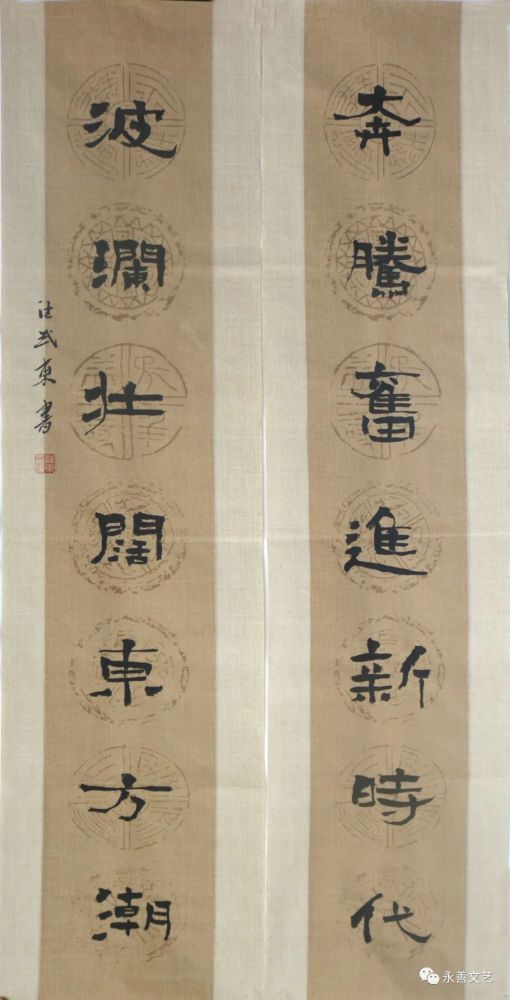 奔騰奮進新時代
波瀾壯闊東方潮
武東書
永善文艺